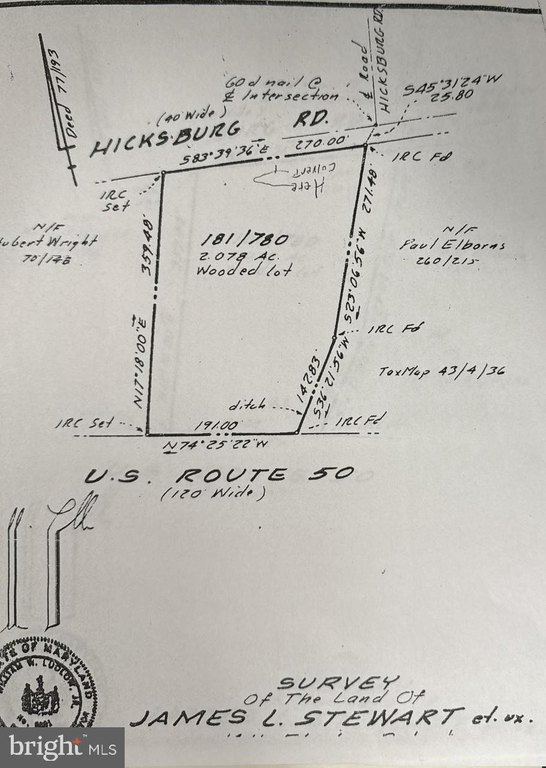 Deed 77/193
60d nail @
℄ Intersection
℄ Road
HICKSBURG RD.
S45°31'24"W
25.80
(40' Wide)
HICKSBURG RD.
S83°39'36"E 270.00'
IRC Fd
IRC
Set
Here
Culvert
359.48'
N17°18'00"E
271.48'
S25°06'56"W
N/F
Hubert Wright
70/148
181/780
2.078 Ac.
Wooded Lot
N/F
Paul Elborns
260/215
IRC Fd
Tax Map 43/4/36
142.83'
S36°12'56"W
ditch
IRC Set
191.00'
IRC Fd
N74°25'22"W
U.S. ROUTE 50
(120' Wide)
STATE OF MARYLAND
WILLIAM W. LUDLOW, JR.
SURVEY
Of The Land Of
JAMES L. STEWART et. ux.
bright MLS